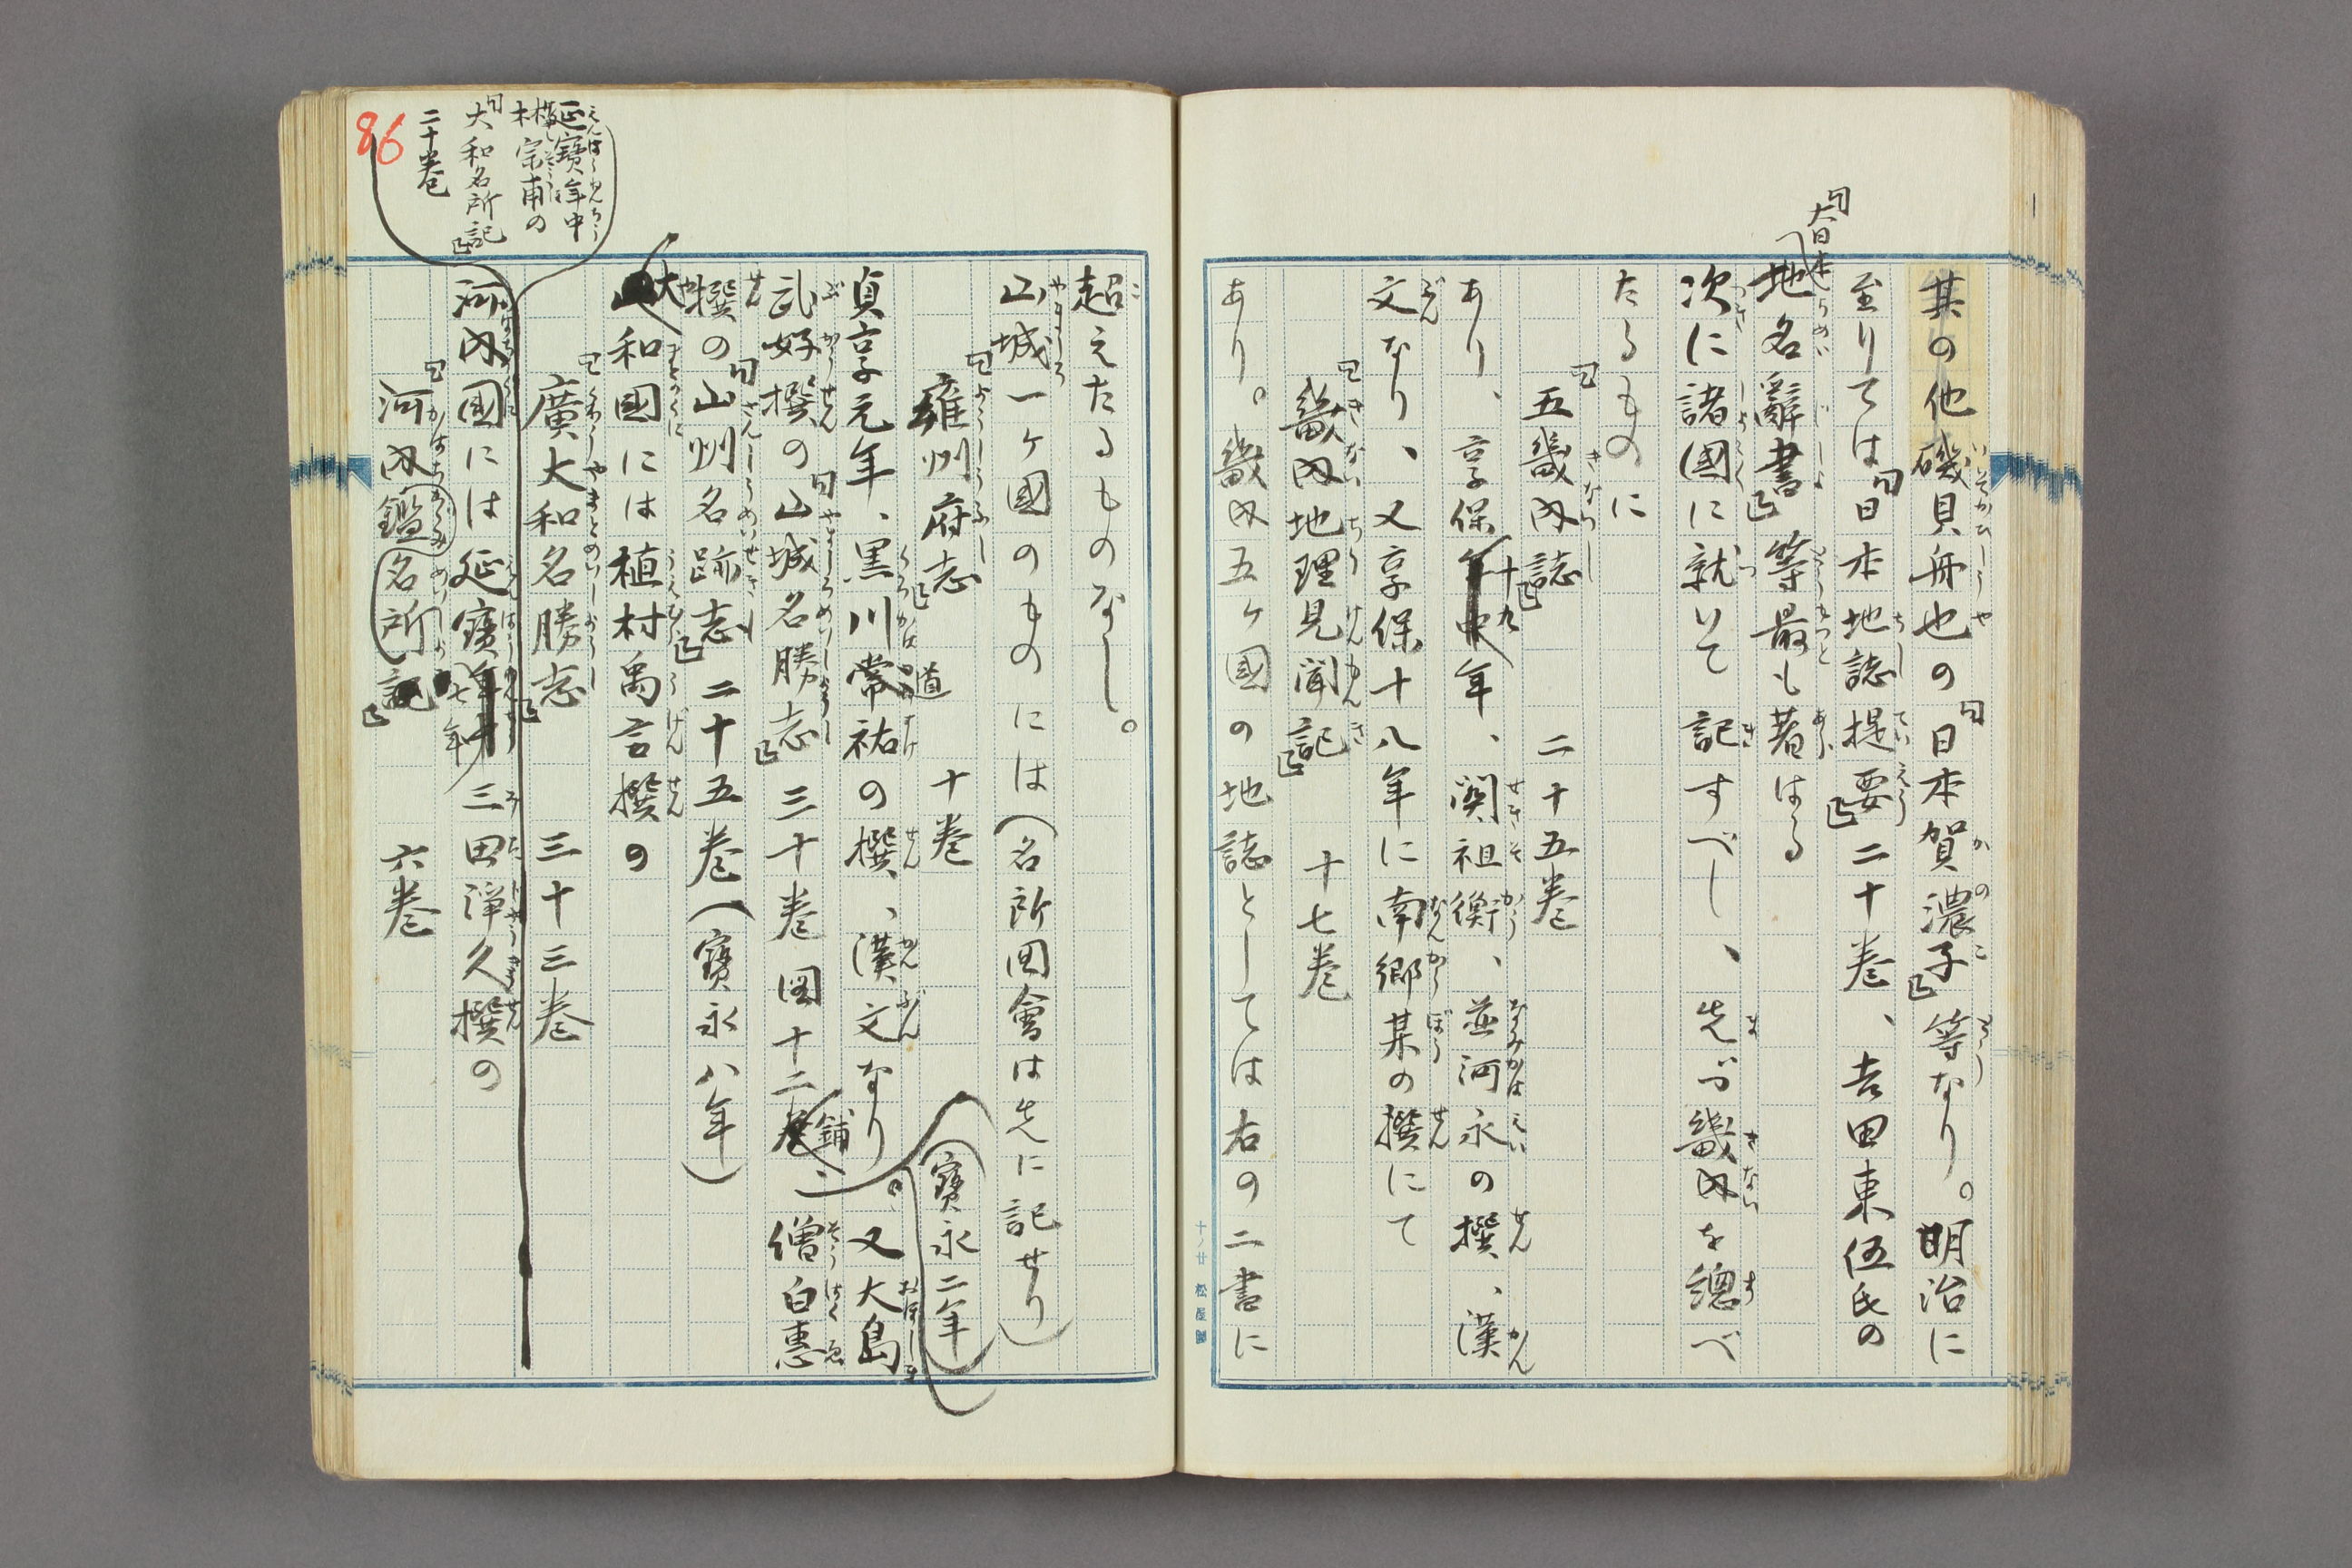 其の他磯貝舟也の「日本賀濃子」等なり。明治に
至りては「日本地誌提要」二十巻、吉田東伍氏の
「大日本
地名辭書」等最も著はる
次に諸國に就いて記すべし、先づ畿内を總べ
たるものに
「五畿内誌」二十五巻
あり、享保十九年、関祖衡、並河永の撰、漢
文なり、又享保十八年に南郷某の撰にて
「畿内地理見聞記」十七巻
あり。畿内五ヶ國の地誌としては右の二書に
十ノ廿 松屋製
超えたるものなし。
山城一ヶ國のものには(名所図會は先に記せり)
「雍州府志」十巻(寶永二年)
貞享元年、黒川道祐の撰、漢文なり。又大島
武好撰の「山城名勝志」三十巻図十二舗、僧白慧
撰の「山州名跡志」二十五巻(寶永八年)
大和國には植村禹言撰の
「廣大和名勝志」三十三巻
延寶年中
林宗甫の
「大和名所記」
二十巻
河内國には延寶七年三田浄久撰の
「河内鑑名所記」六巻
86